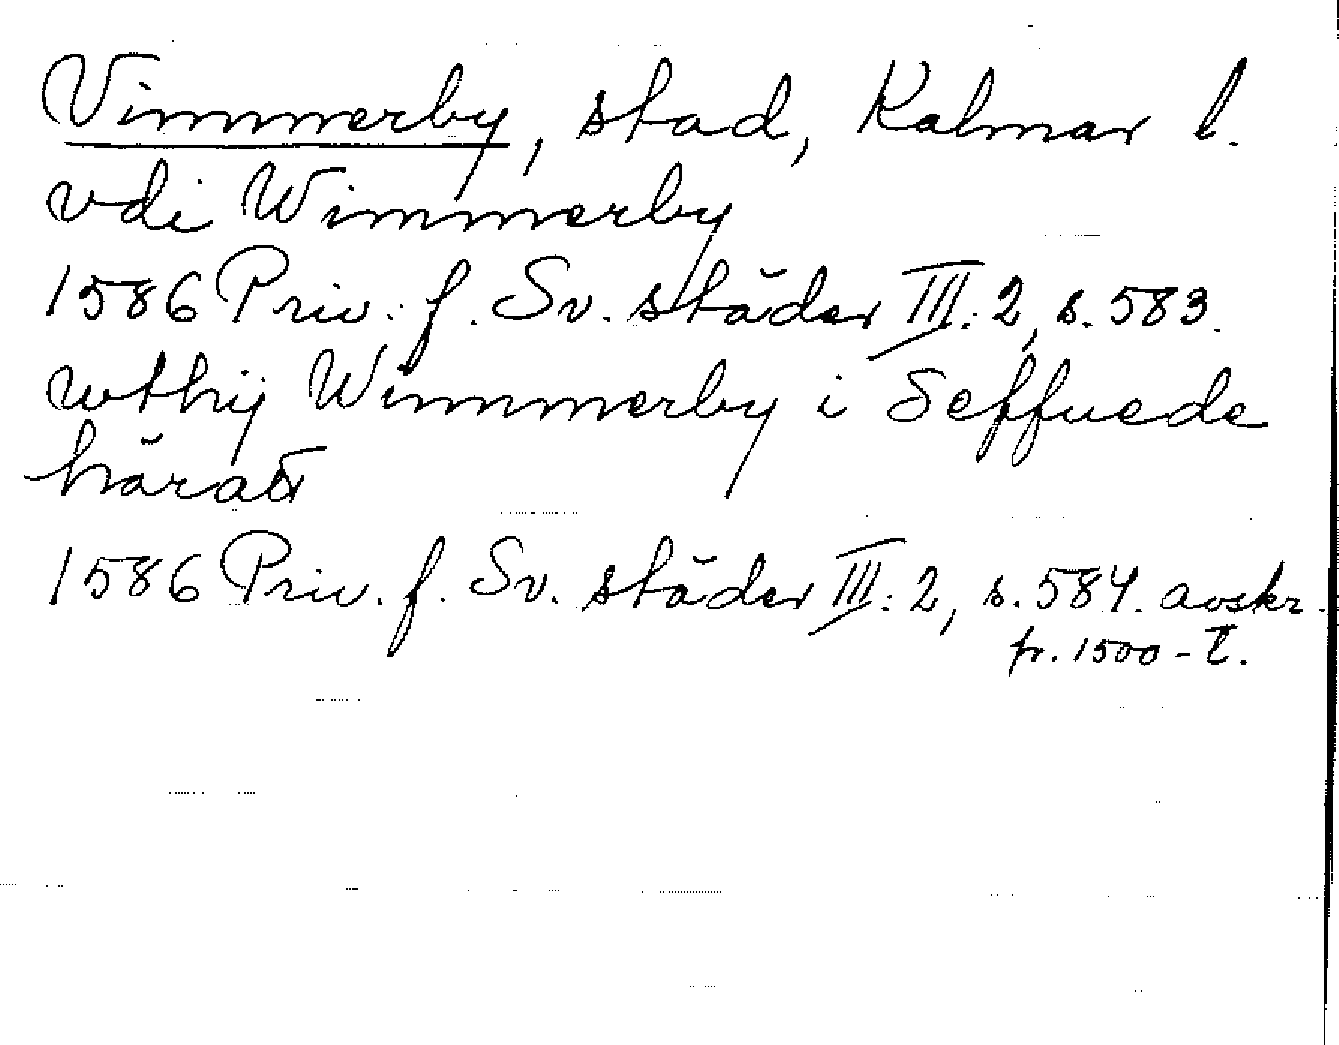 Vimmerby, stad, Kalmar l.
vdi Wimmerby
1586 Priv. f. Sv. städer III:2, s. 583.
wthij Wimmerby i Seffuede
häradt
1586 Priv. f. Sv. städer III:2, s. 584. avskr.
fr. 1500-t.